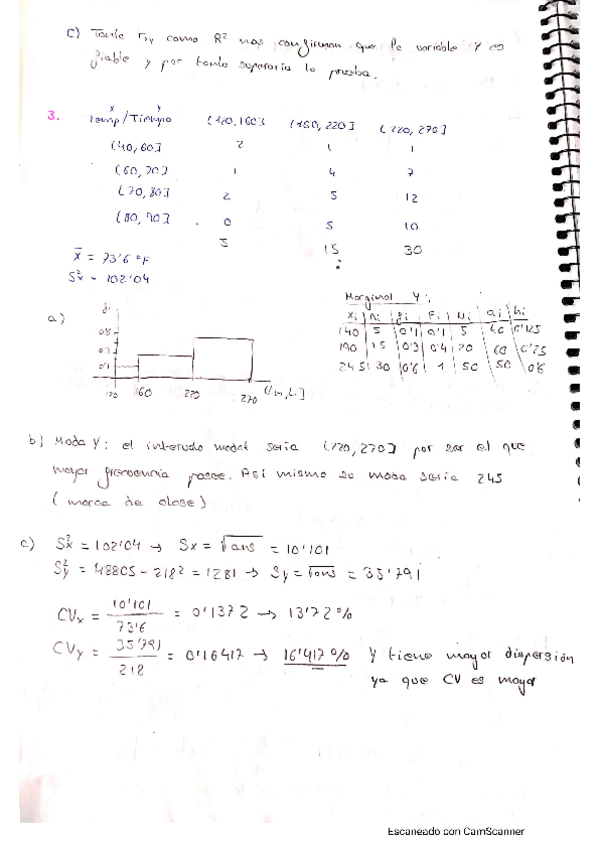 c) Tanto rxy como R² nos confirman que la variable Y es
fiable y por tanto superaría la prueba.
3.
x y
Temp/Tiempo (120,160] (160,220] (220,270]
(40,60] 2 1 1
(60,70] 1 4 7
(70,80] 2 5 12
(80,90] 0 5 10
5 15 30
x̄ = 73'6 ºF
S²x = 102'04
a)
120 160 220 270 (Li-1,Li]
Marginal Y:
xi ni fi Fi Ni ai hi
140 5 0'1 0'1 5 40 0'125
190 15 0'3 0'4 20 60 0'25
245 30 0'6 1 50 50 0'6
b) Moda Y: el intervalo modal sería (220,270] por ser el que
mayor frecuencia posee. Así mismo su moda sería 245
(marca de clase)
c) S²x = 102'04 → Sx = √ans = 10'101
S²y = 48805 - 218² = 1281 → Sy = √ans = 35'791
CVx = 10'101 / 73'6 = 0'1372 → 13'72%
CVy = 35'791 / 218 = 0'16417 → 16'417% Y tiene mayor dispersión
ya que CV es mayor
Escaneado con CamScanner